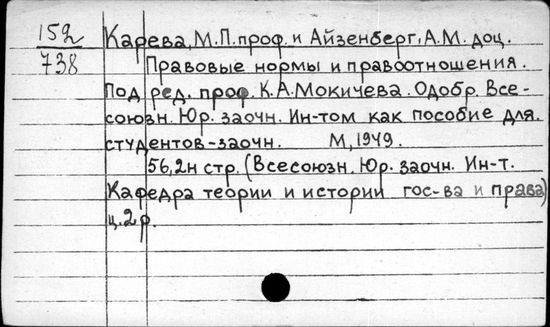 152
738
Карева, М.П. проф. и Айзенберг, А.М. доц.
Правовые нормы и правоотношения.
Под ред. проф. К.А. Мокичева. Одобр. Все-
союзн. Юр. заочн. Ин-том как пособие для
студентов-заочн. М, 1949.
56, 2н стр. (Всесоюзн. Юр. заочн. Ин-т.
Кафедра теории и истории гос-ва и права)
ц. 2 р.